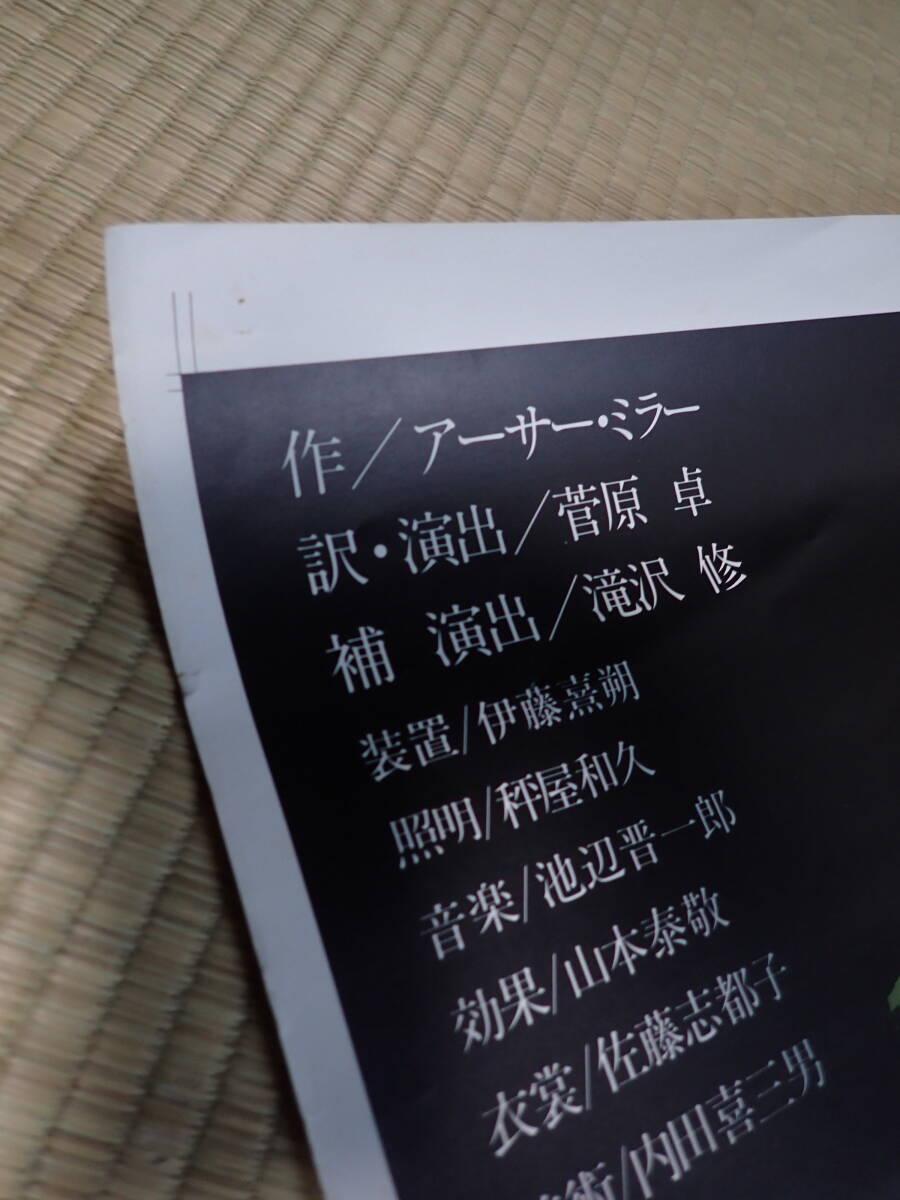 作/アーサー・ミラー
訳・演出/菅原 卓
補 演出/滝沢 修
装置/伊藤熹朔
照明/秤屋和久
音楽/池辺晋一郎
効果/山本泰敬
衣裳/佐藤志都子
術/内田喜三男